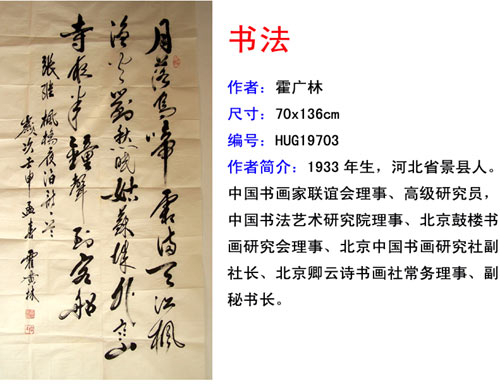 月落烏啼霜满天江楓
渔火對愁眠姑蘇城外寒山
寺夜半鐘聲到客船
張繼楓橋夜泊詩一首
歲次壬申孟春霍广林
书法
作者：霍广林
尺寸：70x136cm
编号：HUG19703
作者简介：1933年生，河北省景县人。
中国书画家联谊会理事、高级研究员，
中国书法艺术研究院理事、北京鼓楼书
画研究会理事、北京中国书画研究社副
社长、北京卿云诗书画社常务理事、副
秘书长。